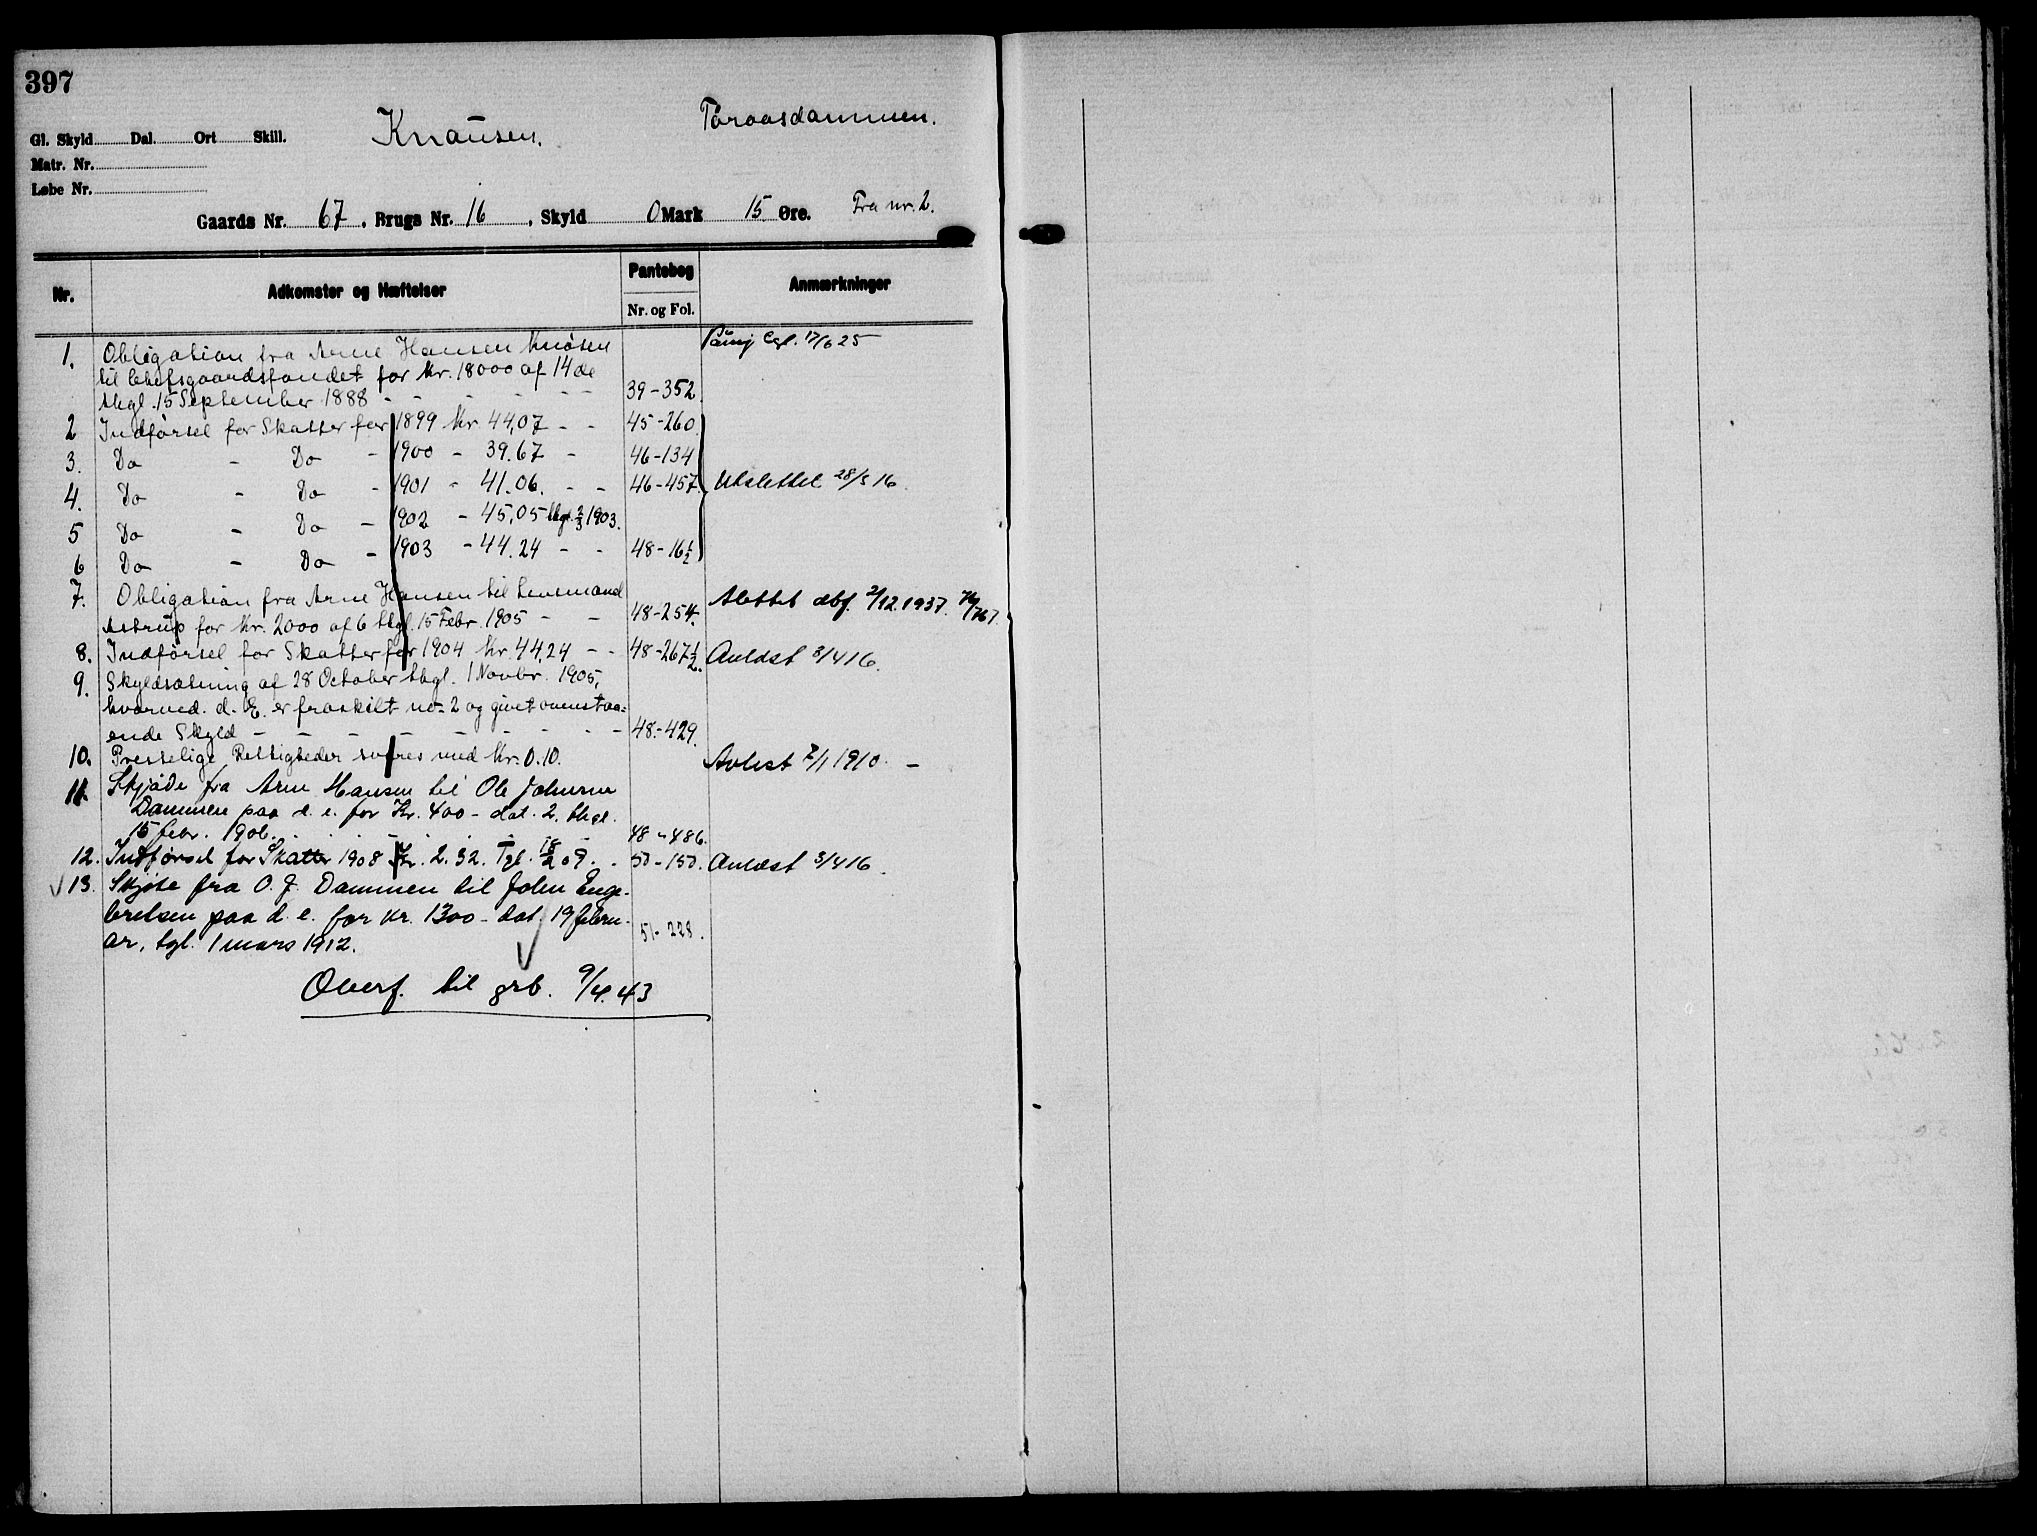 397
Knausen. Toraasdammen.
Gl. Skyld Dal. Ort Skill.
Matr. Nr.
Løbe Nr.
Gaards Nr. 67, Brugs Nr. 16, Skyld 0 Mark 15 Øre. Fra nr. 2.
Nr. Adkomster og Hæftelser Pantebog Anmærkninger
Nr. og Fol.
1. Obligation fra Arne Hansen Knösen
til for Kr. 18000 af 14de
thgl. 15 September 1888 - - - - - - 39-352.
2 Indførsel for Skatter for 1899 Kr 44,07 - - 45-260
3. Do - Do - 1900 - 39.67 - 46-134
4. Do - Do - 1901 - 41.06. - - 46-457. Utslettet 28/5 16.
5 Do - Do - 1902 - 45,05 thgl. 2/3 1903.
6 Do - Do - 1903 - 44.24 - - 48-16½
7. Obligation fra Arne Hansen til Lensmand Slettet dbf. 2/12 1937.
Astrup for Kr. 2000 af 6 thgl. 15 Febr. 1905 - - 48-254.
8. Indførsel for Skatter for 1904 Kr. 44,24 - - 48-267½. Avløst 3/4 16.
9. Skyldsætning af 28 October thgl. 1 Novbr. 1905,
hvorved d. E. er fraskilt no 2 og givet ovenstaa=
ende Skyld - - - - - - - - 48-429.
10. Prestelige Rettigheder svares med Kr. 0.10. Avløst 2/1 1910. -
11. Skjøde fra Arne Hansen til Ole Johnsen
Dammen paa d. e. for Kr. 400 - dat. 2. thgl.
15 febr. 1906. 48-486.
12. Indførsel for Skatter 1908 Kr. 2.32. Tgl. 18/2 09. - 50-150. Avløst 3/4 16.
13. Skjøte fra O. J. Dammen til John Enge-
bretsen paa d. e. for kr. 1300 - dat. 19 febru-
ar, tgl. 1 mars 1912. 51-228.
Overf. til grb. 9/4.43